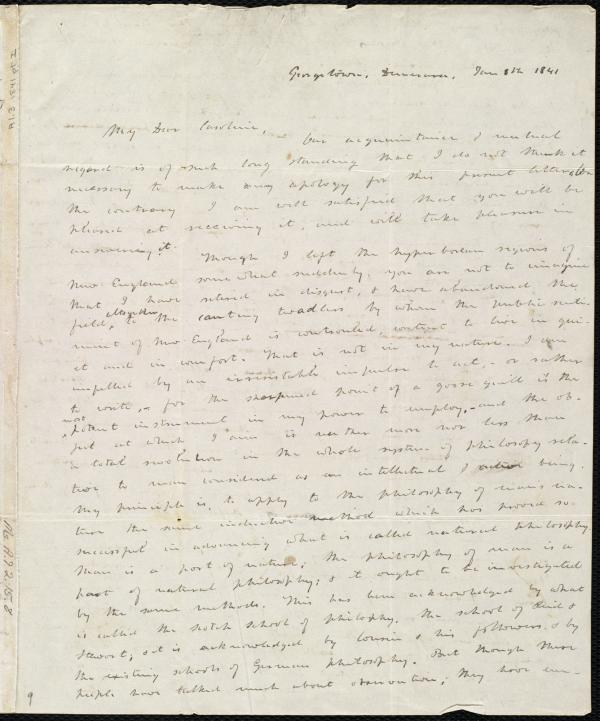 Georgetown, Demerara, Jan 8th 1841
My Dear Caroline,
Our acquaintance & mutual
regard is of such long standing that I do not think it
necessary to make any apology for this present letter. On
the contrary I am well satisfied that you will be
pleased at receiving it, and will take pleasure in
answering it.
Though I left the hyperborean regions of
New England somewhat suddenly, you are not to imagine
that I have retired in disgust, & have abandoned the
field, altogether to the canting by whom the public senti-
ment of New England is controuled, content to live in qui-
et and in comfort. That is not in my nature. I am
impelled by an irresistable impulse to act, - or rather
to write, - for the sharpened point of a goose quill is the
most potent instrument in my power to employ, - and the ob-
ject at which I aim is neither more nor less than
a total revolution in the whole system of philosophy rela-
tive to man considered as an intellectual & active being.
My principle is, to apply to the philosophy of man's na-
ture the same inductive method which has proved so
successful in advancing what is called natural philosophy.
Man is a part of nature; the philosophy of man is a
part of natural philosophy; & it ought to be investigated
by the same methods. This has been acknowledged by what
is called the Scotch school of philosophy. The school of Reid &
Stewart; & it is acknowledged by Cousin & his followers & by
the existing schools of German philosophy. But though these
people have talked much about observation, they have em-
9